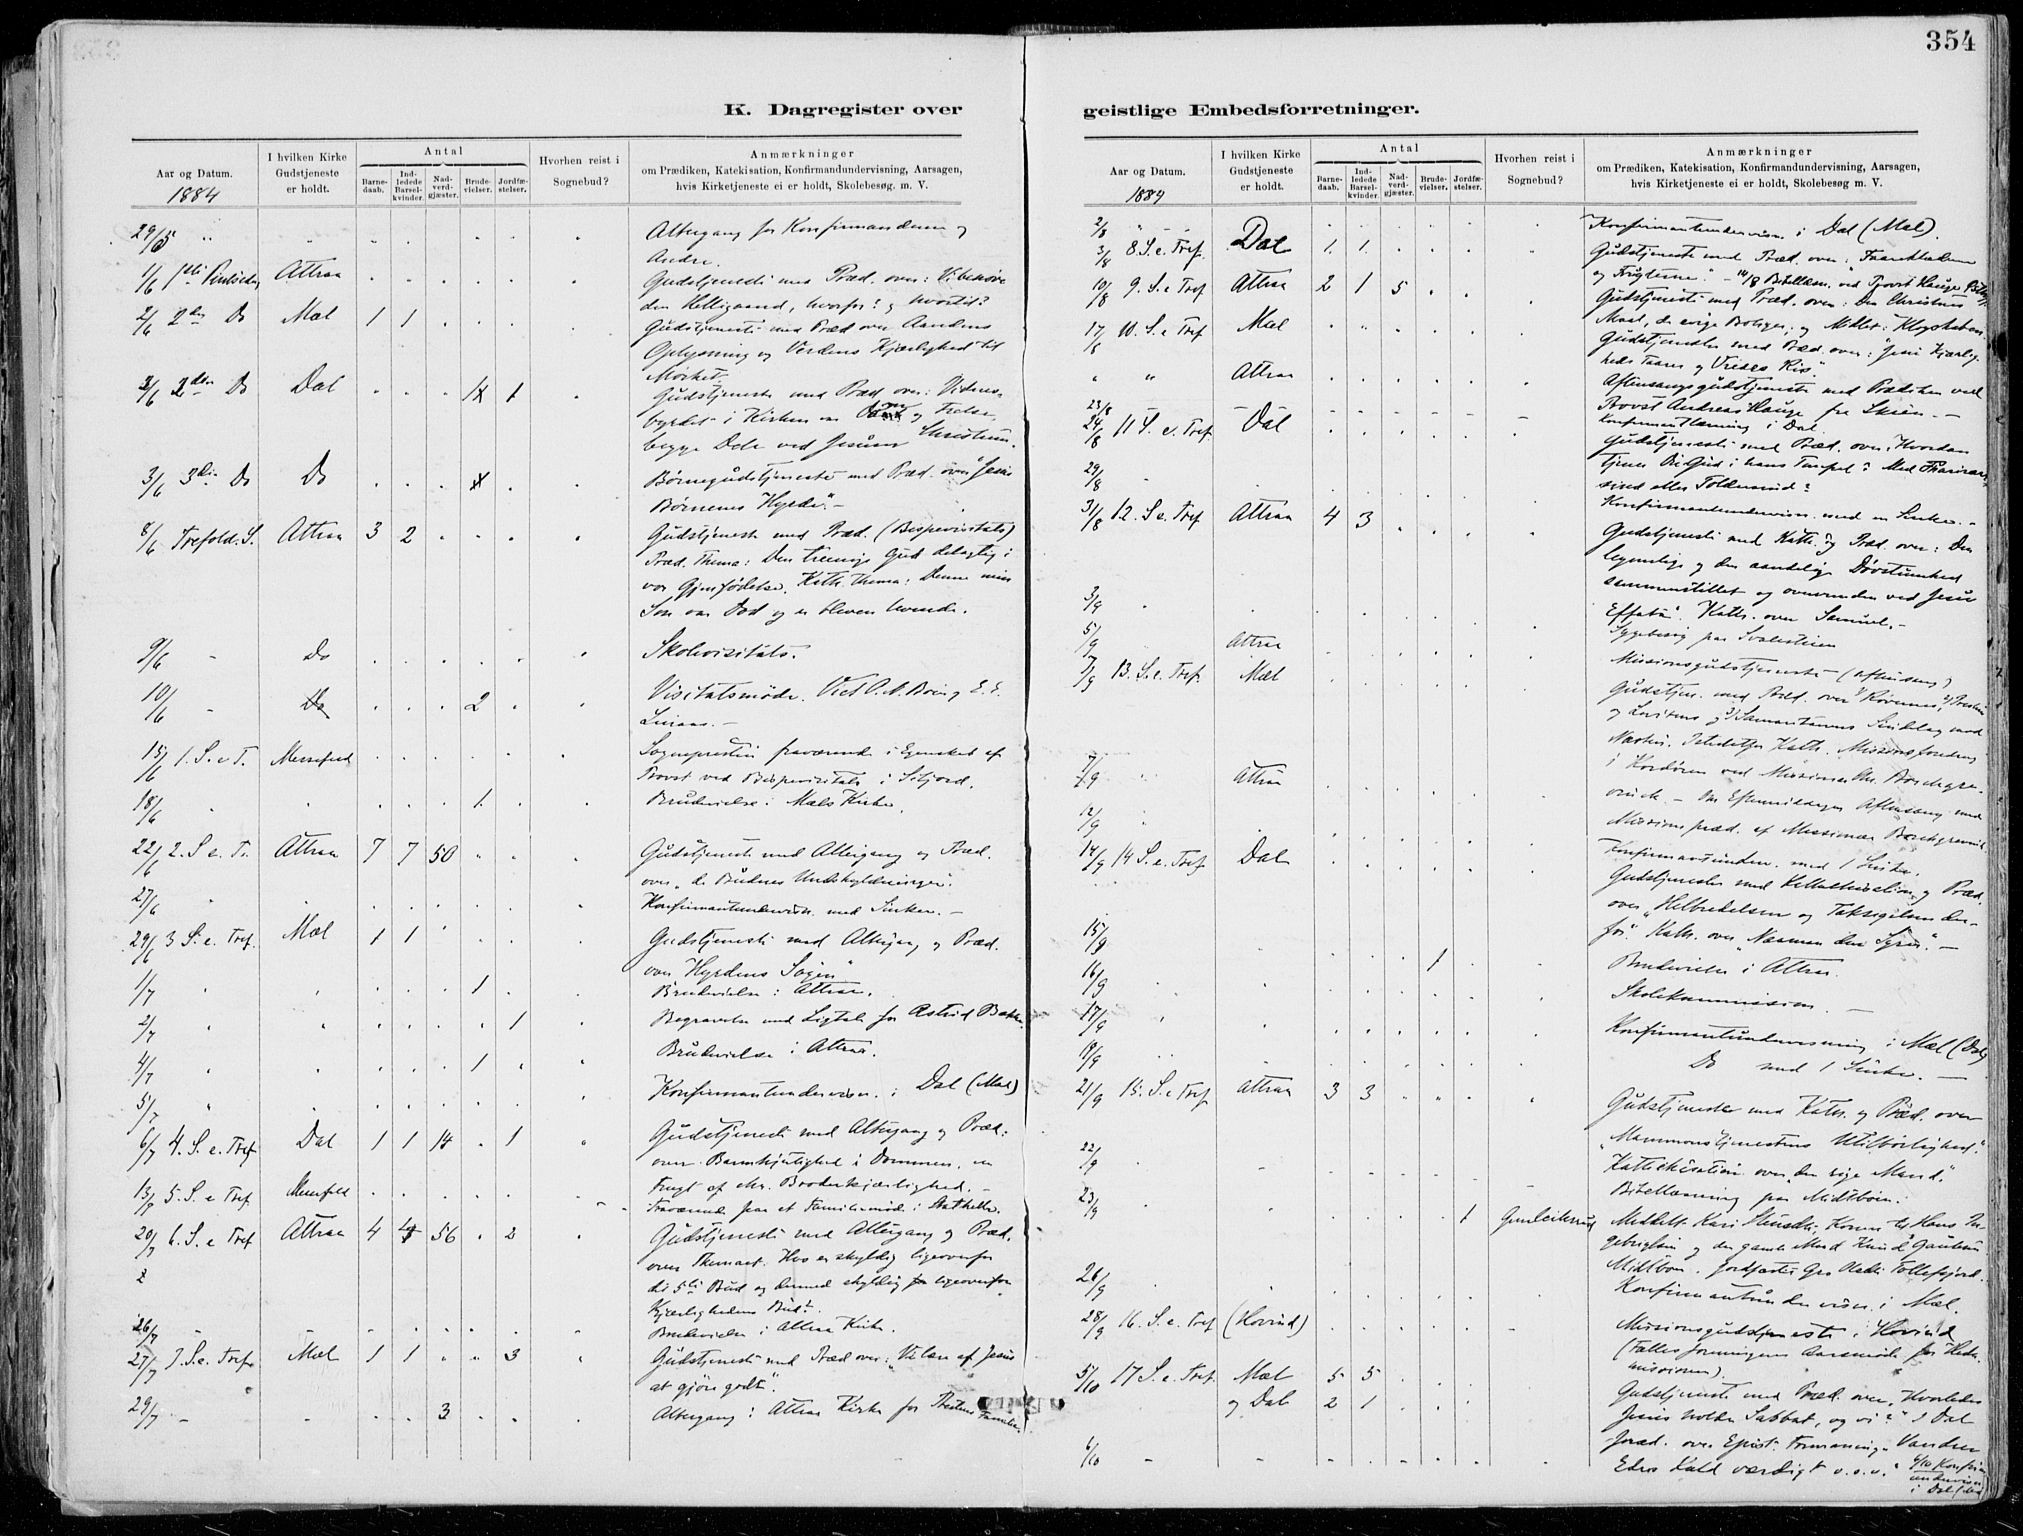 354
K. Dagregister over
Aar og Datum.
I hvilken Kirke Gudstjeneste er holdt.
Antal
Barnedaab.
Indledede Barselkvinder.
Nadverdgjæster.
Brudevielser.
Jordfæstelser.
Hvorhen reist i Sognebud?
Anmærkninger
om Prædiken, Katekisation, Konfirmandundervisning, Aarsagen,
hvis Kirketjeneste ei er holdt, Skolebesøg. m. V.
1884
29/5 Altergang for Konfirmanderne og
Andre.
1/6 1ste Pintsedag Attraa Gudstjeneste med Præd. over: Vi behøve
den Helligaand, hvorfor? og hvortil?
2/6 2den Do Mæl 1 1 Gudstjeneste med Præd over Aandens
Oplysning og Verdens Kjærlighed til
Mørket.
2/6 2den Do Dal 1 Gudstjeneste med Præd over: Vidnes-
byrdet i Kirken om Dom og Frelse,
begge Dele ved Jesum Christum.
3/6 3die Do Do Børnegudstjeneste med Præd. over "Jesus
Børnenes Hyrde". -
8/6 Trefold. S. Attraa 3 2 Gudstjeneste med Præd. (Bispevisitats)
Præd. Thema: Den treenige Gud delagtig i
vor Gjenfødelse. Kath. Thema: Denne min
Søn var Død og er bleven levende.
9/6 - Do Skolevisitats.
10/6 - Do 2 Visitatsmøde.
15/6 1. S. e T. Messefald Sognepresten fraværende i Egenskab af
Provst ved Bispevisitats i Siljord.
18/6 1 Brudevielse i Mæls Kirke.
22/6 2. S e. Tr. Attraa 7 7 50 Gudstjeneste med Altergang og Præd.
over "de Budnes Undskyldninger".
27/6 Konfirmantundervisn. med Sinker. -
29/6 3 S. e. Tref. Mæl 1 1 Gudstjeneste med Altergang og Præd.
over "Hyrdens Søgen"
1/7 1 Brudevielse i Attraa.
2/7 1 Begravelse med Ligtale for Astrid
4/7 1 Brudevielse i Attraa.
5/7 Konfirmantundervisn. i Dal (Mæl)
6/7 4. S. e. Tref. Dal 1 1 14 1 Gudstjeneste med Altergang og Præd.
over Barmhjertighed i Dommen, en
Frugt af chr. Broderkjærlighed. -
13/7 5. S. e Tref Messefald Fraværende paa et Familiemøde i Stathelle.
20/7 6. S. e Tref Attraa 4 4 56 2 Gudstjeneste med Altergang og Præd.
over Themaet. Hvo er skyldig ligeoverfor
det 5te Bud og dermed skyldig ligeoverfor
Kjærlighedens Bud?
26/7 - Brudevielse i Attraa Kirke.
27/7 7. S. e. Tref. Mæl 1 1 3 Gudstjeneste med Præd over: "Vi lære af Jesus
at gjøre godt".
29/7 - 3 Altergang i Attraa Kirke for Prestens Familie.
geistlige Embedsforretninger.
Aar og Datum.
I hvilken Kirke Gudstjeneste er holdt.
Antal
Barnedaab.
Indledede Barselkvinder.
Nadverdgjæster.
Brudevielser.
Jordfæstelser.
Hvorhen reist i Sognebud?
Anmærkninger
om Prædiken, Katekisation, Konfirmandundervisning, Aarsagen,
hvis Kirketjeneste ei er holdt, Skolebesøg m. V.
1884
2/8 Konfirmantundervisn. i Dal (Mæl).
3/8 8 S. e. Tref. Dal 1. 1. Gudstjeneste med Præd. over: Faareklæderne
og Frugterne". - 14/8 Bibellæsn. ved Provst Hauge
10/8 9. S. e Tref Attraa 2 1 5 Gudstjeneste med Præd. over: Den Christnes
Maal, de evige Boliger, og Midlet: Klogskaben
17/8 10. S. e Tref Mæl Gudstjeneste med Præd. over: "Jesu Kjærlig-
heds Taarer og Vredes Ris"
" " Attraa Aftensangsgudstjeneste med Prædiken ved
Provst Andreas Hauge fra Skien. -
23/8 - Konfirmantlæsning i Dal
24/8 11 S. e. Tref. Dal Gudstjeneste med Præd. over: Hvordan
tjenes Gud i hans Tempel? Med Farisæer-
sind eller Toldersind?
29/8 Konfirmantundervisn. med en Sinke. -
31/8 12. S e. Tref Attraa 4 3 Gudstjeneste med Kath. og Præd. over: Den
legemlige og den aandelige Døvstumhed
sammenstillet og overvunden ved Jesu
Effata". Kath. over Samuel. -
3/9 Sygebesøg paa
5/9 Attraa Missionsgudstjeneste (aftensang)
7/9 13. S. e Tref. Mæl Gudstjen. med Præd. over 1) Røvernes, 2) Prestens
og Levitens og 3) Samaritanens Sindelag mod
Næsten. Istedetfor Kath. Missionsforedrag
7/9 Attraa
Om Eftermiddagen Aftensang med
Missionspræd. af Missionær
12/9 Konfirmantunderv. med 1 Sinke.
14/9 14 S. e. Tref. Dal Gudstjeneste med Kathekisation og Præd.
over "Helbredelsen og Taksigelsen der-
for." Kath. over "Naaman den Syrer". -
15/9 1 Brudevielse i Attraa.
16/9 Skolekommission. -
17/9 Konfirmantundervisning i Mæl (Dal)
19/9 Do med 1 Sinke. -
21/9 15. S. e Tref Attraa 3 3 Gudstjeneste med Kath. og Præd. over
"Mammonstjenestens Utilbørlighed".
Kathekisation over "den rige Mand".
22/9 Bibellæsning paa Midtbøen.
23/9 1 Gunleiksrud Meddelt Kari
og den gamle Mand Knud Gautesen
Midtbøen. Jordfæstet Gro
26/9 Konfirmantundervisn. i Mæl.
28/9 16. S. e. Tref (Hovind) Missionsgudstjeneste i Hovind
(Fællesforeningens Aarsmøde for Hedn.
missionen).
5/10 17 S. e. Tref. Mæl 5 5 Gudstjeneste med Præd. over "Hvorledes
og Dal 2 1 Jesus holder Sabbat, og vi?" I Dal
præd. over Epist. Formaning: "Vandrer
6/10 - Eders Kald værdigt o.s.v." 6/10 Konfirm.
undervisn.
i Dal